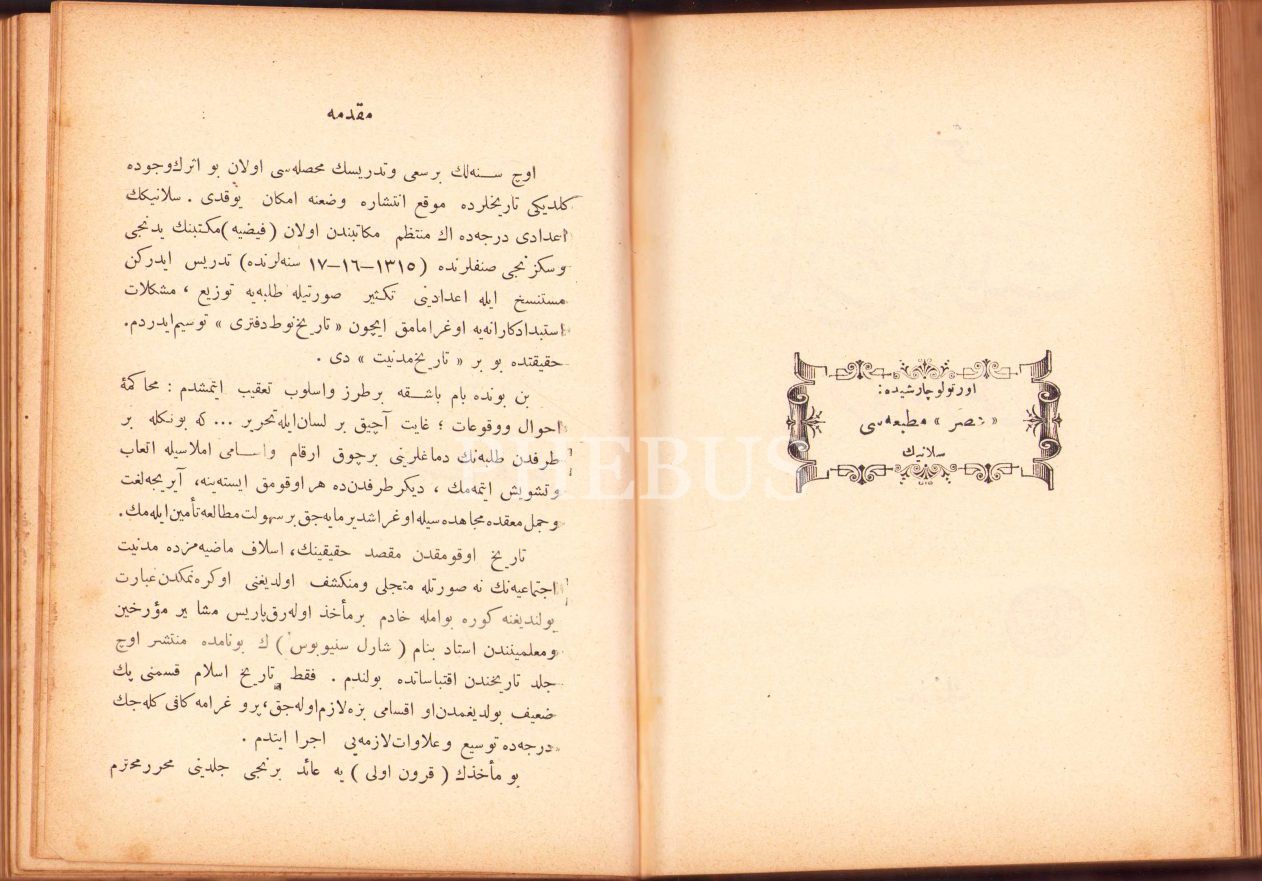 اورتولو چارشیده:
« عصر » مطبعه‌سی
سلانیك
مقدمه
اوچ سنه‌لك بر سعی وتدریسك محصله‌سی اولان بو اثرك وجوده
كلدیكی تاریخلرده موقع انتشاره وضعنه امكان یوقدی . سلانیكك
اعدادی درجه‌ده اك منتظم مكاتبندن اولان ( فیضیه ) مكتبنك یدنجی
وسكزنجی صنفلرنده ( ١٣١٥–١٦–١٧ سنه‌لرنده ) تدریس ایدركن
مستنسخ ایله اعدادینی تكثیر صورتیله طلبه‌یه توزیع ، مشكلات
استبدادكارانه‌یه اوغرامامق ایچون « تاریخ نوط دفتری » توسیم ایدردم.
حقیقتده بو بر « تاریخ مدنیت » دی .
بن بونده بام باشقه بر طرز واسلوب تعقیب ایتمشدم : محاكمهٔ
احوال ووقوعات ؛ غایت آچیق بر لسان ایله تحریر ... كه بونكله بر
طرفدن طلبه‌نك دماغلرینی برچوق ارقام واسامی املاسیله اتعاب
وتشویش ایتمه‌مك ، دیكر طرفدن ده هر اوقومق ایسته‌ینه، آیریجه لغت
وجمل معقده مجاهده سیله اوغراشدیرمایه‌جق بر سهولت مطالعه تأمین ایله‌مك.
تاریخ اوقومقدن مقصد حقیقینك، اسلاف ماضیه‌مزده مدنیت
اجتماعیه‌نك نه صورتله متجلی ومنكشف اولدیغنی اوكره‌نمكدن عبارت
بولندیغنه كوره بو امله خادم بر مأخذ اوله‌رق پاریس مشا یر مؤرخین
ومعلمیننندن استاد بنام ( شارل سنیوبوس ) ك بونامده منتشر اوچ
جلد تاریخندن اقتباساتده بولندم . فقط تاریخ اسلام قسمنی پك
ضعیف بولدیغمدن او اقسامی بزه لازم اوله‌جق، پروغرامه كافی كله‌جك
درجه‌ده توسیع وعلاوات لازمه‌یی اجرا ایتدم .
بو مأخذك ( قرون اولی ) یه عائد برنجی جلدینی محرر محترم
PHEBUS